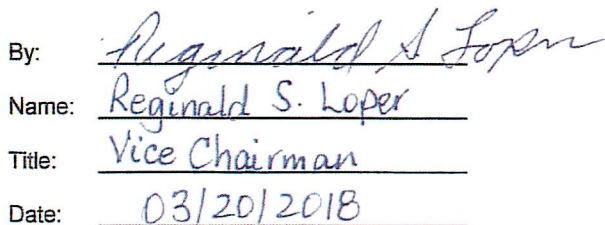 By: Reginald S Loper
Name: Reginald S. Loper
Title: Vice Chairman
Date: 03/20/2018